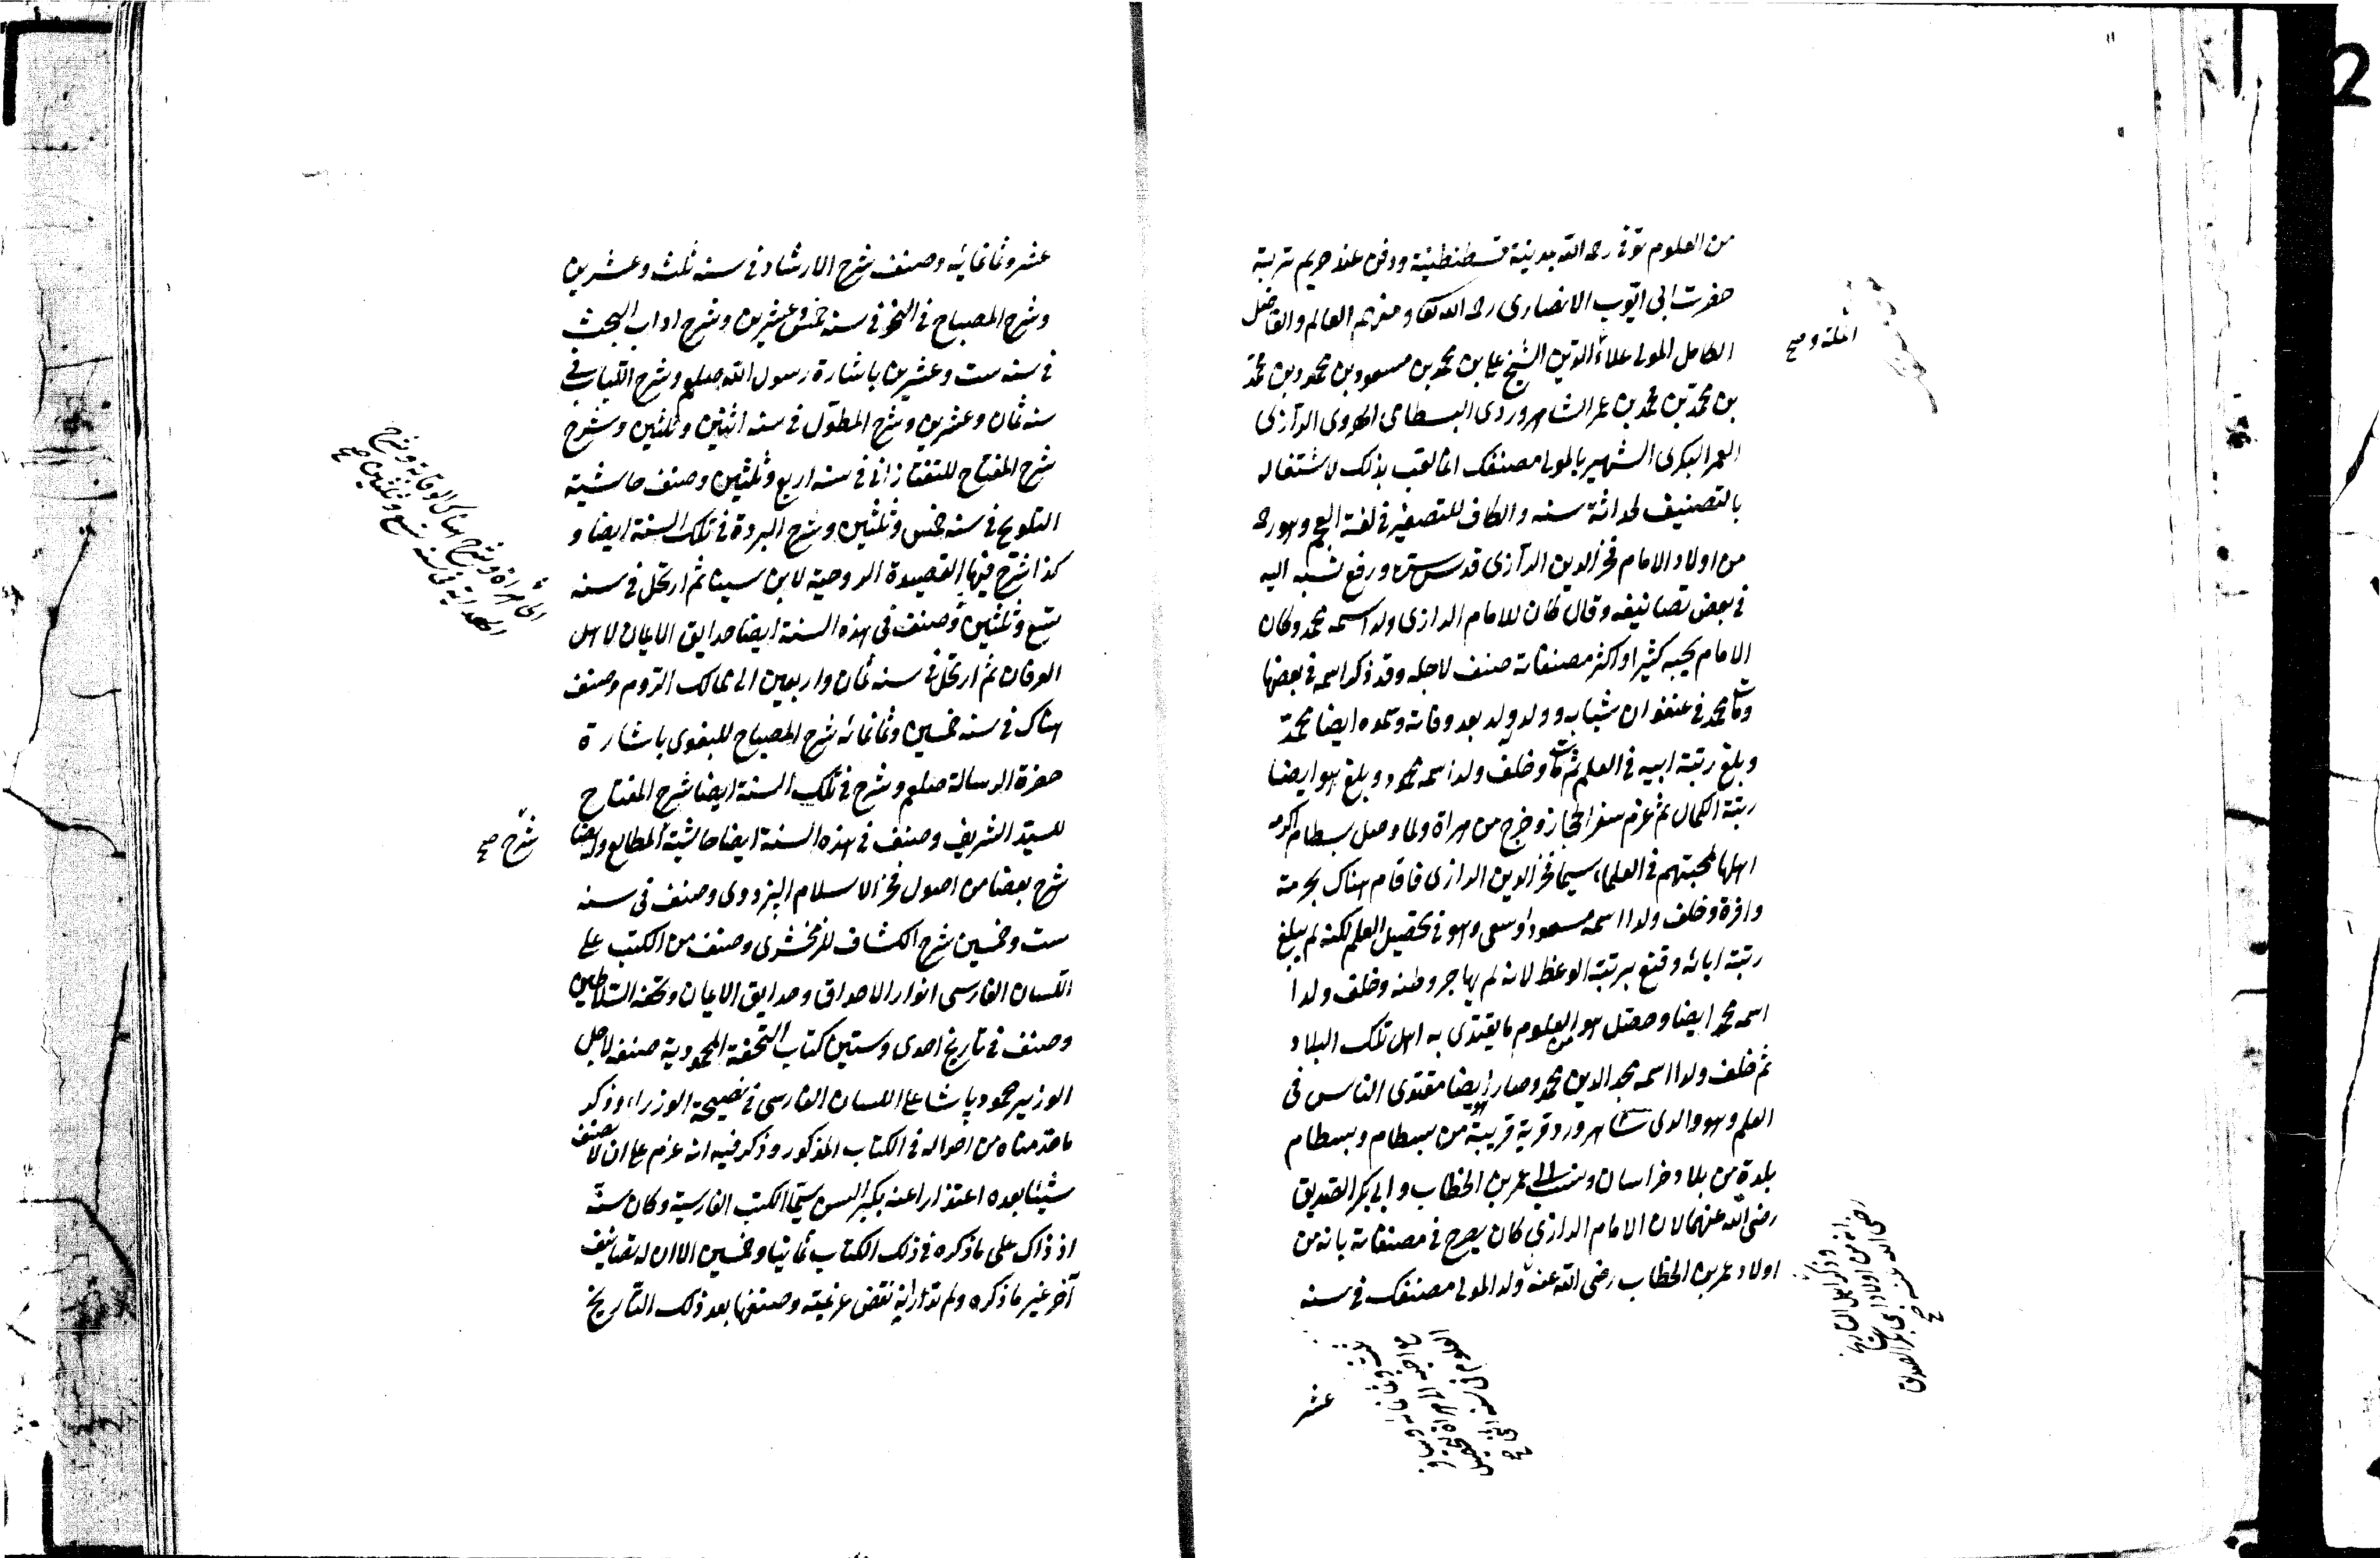 من العلوم توفى رحمه الله بمدينة قسطنطنية ودفن عند حريم تربة
حضرت ابى ايوب الانصارى رحمه الله تعالى ومنهم العالم والفاضل
الكامل المولى علاء الدين الشيخ على بن محمد بن مسعود بن محمود بن محمد
بن محمد بن محمد بن عمر الشاهرودى البسطامى الهروى الرازى
العمرى البكرى الشهير بالمولى مصنفك انما لقب بذلك لاشتغاله
بالتصنيف لحداثة سنه والكاف للتصغير فى لغة العجم وهو رحمه
من اولاد الامام فخر الدين الرازى قدس سره ورفع نسبه اليه
فى بعض تصانيفه وقال كان للامام الرازى ولد اسمه محمد وكان
الامام يحبه كثيرا واكثر مصنفاته صنف لاجله وقد ذكر اسمه فى بعضها
ومات محمد فى عنفوان شبابه وولد ولد بعد وفاته وسموه ايضا محمد
وبلغ رتبة ابيه فى العلم ثم مات وخلف ولدا اسمه محمود وبلغ هو ايضا
رتبة الكمال ثم عزم سفر الحجاز وخرج من هراة ولما وصل بسطام اكرمه
اهلها لمحبتهم فى العلماء سيما فخر الدين الرازى فاقام هناك بحرمة
وافرة وخلف ولدا اسمه مسعودا وسعى وهو فى تحصيل العلم لكنه لم يبلغ
رتبة ابائه وقنع برتبة الوعظ لانه لم يهاجر وطنه وخلف ولدا
اسمه محمد ايضا وحصل هو من العلوم ما يقتدى به اهل تلك البلاد
ثم خلف ولدا اسمه مجد الدين محمد وصار ايضا مقتدى الناس فى
العلم وهو والدى شاهرود قرية قريبة من بسطام وبسطام
بلدة من بلاد خراسان ونسب الى عمر بن الخطاب وابى بكر الصديق
رضى الله عنهما لان الامام الرازى كان يصرح فى مصنفاته بانه من
اولاد عمر بن الخطاب رضى الله عنه ولد المولى مصنفك فى سنه
وذكر اهل التاريخ
انه من اولاد ابى بكر الصديق
رضى الله عنه صح
عشر
عشر وثمانمائه وصنف شرح الارشاد فى سنه ثلث وعشرين
وشرح المصباح فى النحو فى سنه خمس وعشرين وشرح اداب البحث
فى سنه ست وعشرين باشارة رسول الله صلعم وشرح اللباب فى
سنه ثمان وعشرين وشرح المطول فى سنه اثنتين وثلثين وشرح
شرح المفتاح للتفتازانى فى سنه اربع وثلثين وصنف حاشية
التلويح فى سنه خمس وثلثين وشرح البردة فى تلك السنة ايضا و
كذا شرح فيها القصيدة الروحية لابن سينا ثم ارتحل فى سنه
تسع وثلثين وصنف فى هذه السنة ايضا حدايق الايمان لاهل
العرفان ثم ارتحل فى سنه ثمان واربعين الى ممالك الروم وصنف
هناك فى سنه خمسين وثمانمائه شرح المصباح للبغوى باشارة
حضرة الرسالة صلعم وشرح فى تلك السنة ايضا شرح المفتاح
للسيد الشريف وصنف فى هذه السنة ايضا حاشية المطالع وايضا
شرح بعضا من اصول فخر الاسلام البزدوى وصنف فى سنه
ست وخمسين شرح الكشاف للزمخشرى وصنف من الكتب على
اللسان الفارسى انوار الاحداق وحدايق الايمان وتحفة السلاطين
وصنف فى تاريخ احدى وستين كتاب التحفة المحمودية صنفه لاجل
الوزير محمود پاشا على اللسان الفارسى فى نصيحة الوزراء وذكر
ما قدمناه من احواله فى الكتاب المذكور وذكر فيه انه عزم على ان لا يصنف
شيئا بعده اعتذارا عنه بكبر السن سيما الكتب الفارسية وكان سنه
اذ ذاك على ما ذكره فى ذلك الكتاب ثمانيا وخمسين الا ان له تصانيف
آخر غير ما ذكره ولم ندر انه نقض عزيمته وصنفها بعد ذلك التاريخ
الى هراة وشرح هناك الوقاية وشرح
الهداية فى سنه تسع وثلثين صح
شرح صح